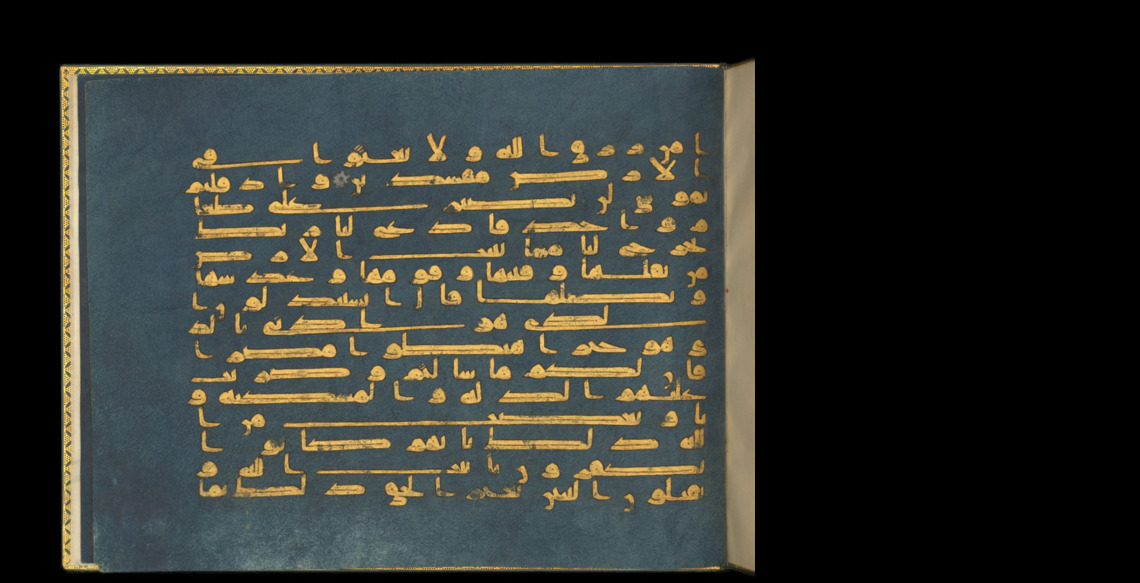 ا من رزق الله ولا تعثوا في
الارض مفسدين واذ قلتم
يموسى لن نصبر على طعا
م وحد فادع لنا ربك
يخرج لنا مما تنبت الارض
من بقلها وقثائها وفومها وعدسها
وبصلها قال اتستبدلون ا
لذي هو ادنى بالذ
ي هو خير اهبطوا مصرا
فان لكم ما سالتم وضربت
عليهم الذلة والمسكنة و
باو بغضب من ا
لله ذلك بانهم كانوا
يكفرون بايت الله و
يقتلون النبين بغير الحق ذلك بما